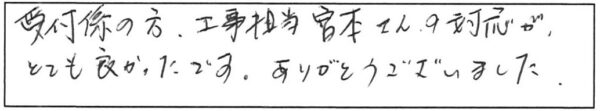 受付係の方、工事担当宮本さんの対応が、
とても良かったです。ありがとうございました.